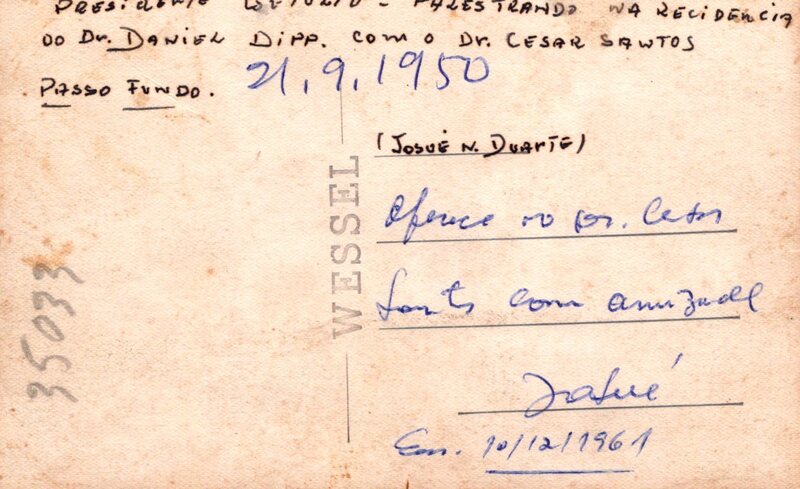 PRESIDENTE GETÚLIO - PALESTRANDO NA RECIDENCIA
DO Dr. DANIEL DIPP. COM O Dr. CESAR SANTOS
PASSO FUNDO. 21.9.1950
(JOSUÉ N. DUARTE)
WESSEL
Oferece ao Dr. Cesar
Santos com amizade
Josué
Em. 10/12/1961
35033